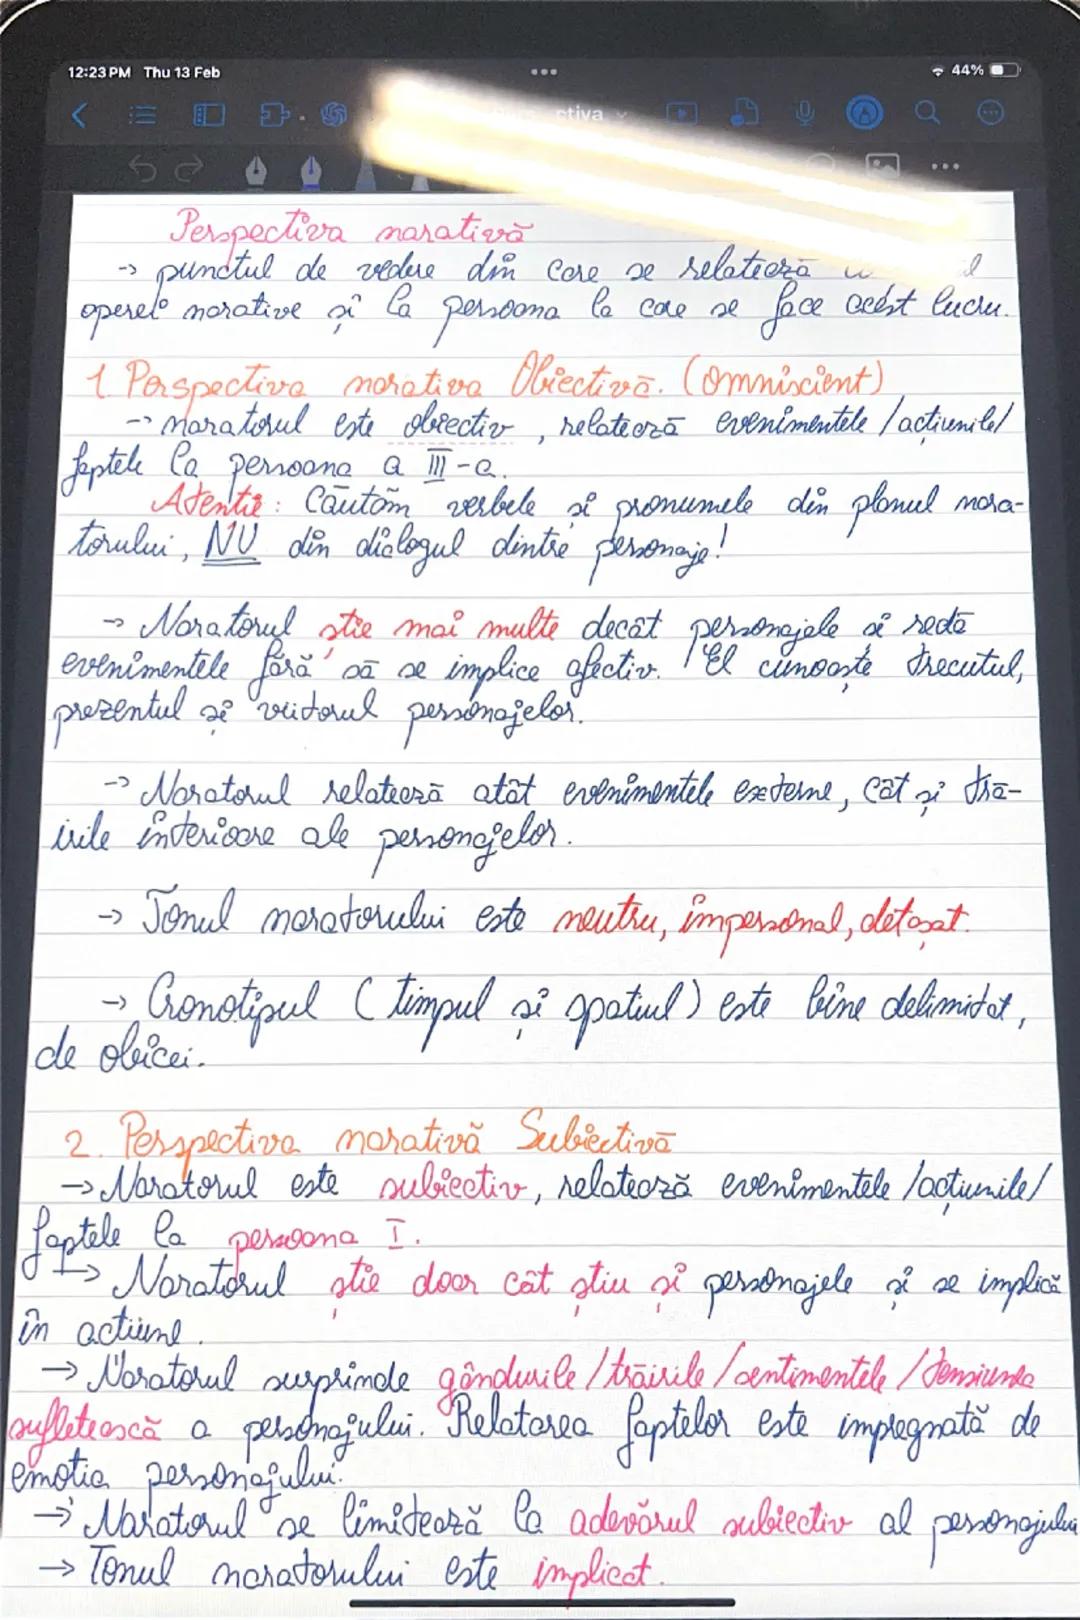 12:23 PM Thu 13 Feb
44%
ctiva
Perspectiva narativă
-> punctul de vedere din care se relatează
operei narative și la persoana la care se face acest lucru.
1 Perspectiva narativa Obiectivă. (omniscient)
-> naratorul este obiectiv, relatează evenimentele/acțiunile/
faptele la persoana a III-a.
Atenție: Căutăm verbele și pronumele din planul nara-
torului, NU din dialogul dintre personaje!
-> Naratorul știe mai multe decât personajele și redă
evenimentele fără să se implice afectiv. El cunoaște trecutul,
prezentul și viitorul personajelor.
-> Naratorul relatează atât evenimentele externe, cât și tră-
irile interioare ale personajelor.
-> Tonul naratorului este neutru, impersonal, detașat.
-> Cronotipul (timpul și spațiul) este bine delimitat,
de obicei.
2. Perspectiva narativă Subiectivă
-> Naratorul este subiectiv, relatează evenimentele/acțiunile/
faptele la persoana I.
-> Naratorul știe doar cât știu și personajele și se implică
în acțiune.
-> Naratorul surprinde gândurile/trăirile/sentimentele/tensiunea
sufletească a personajului. Relatarea faptelor este impregnată de
emoția personajului.
-> Naratorul se limitează la adevărul subiectiv al personajului
-> Tonul naratorului este implicat.